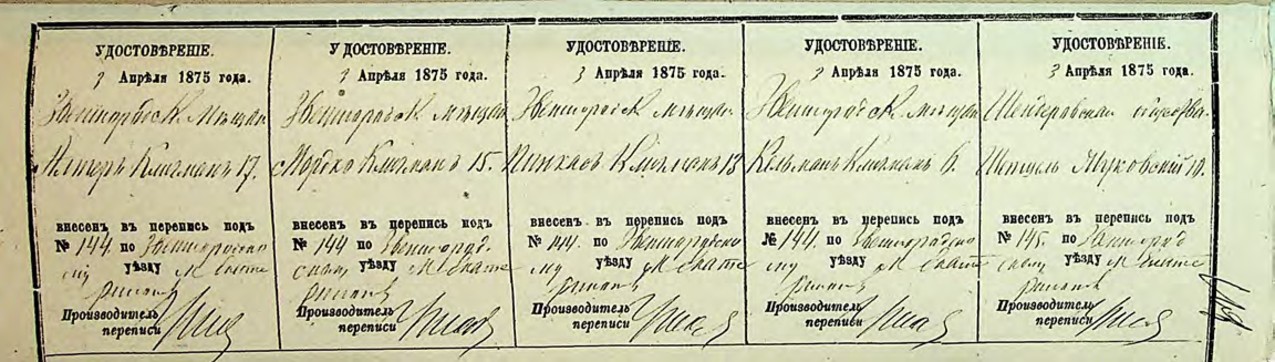 УДОСТОВѢРЕНІЕ.
3 Апрѣля 1875 года.
Звенигородск. мѣщан.
Клигманъ 17.
внесенъ въ перепись подъ
№ 144. по Звенигородско
му уѣзду М Екате
риноп
Производитель
переписи
УДОСТОВѢРЕНІЕ.
3 Апрѣля 1875 года.
Звенигородск мѣщан
Мордко Клигманъ 15.
внесенъ въ перепись подъ
№ 144 по Звенигород
скому уѣзду М Екате
ринопъ
Производитель
переписи
УДОСТОВѢРЕНІЕ.
3 Апрѣля 1875 года.
Звенигородск мѣщан
Пинхасъ Клигманъ 13
внесенъ въ перепись подъ
№ 144. по Звенигородско
му уѣзду М Екате
ринопъ
Производитель
переписи
УДОСТОВѢРЕНІЕ.
3 Апрѣля 1875 года.
Звенигородск мѣщан
Кельманъ Клигманъ 6.
внесенъ въ перепись подъ
№ 144. по Звенигородско
му уѣзду М Екате
ринопъ
Производитель
переписи
УДОСТОВѢРЕНІЕ.
3 Апрѣля 1875 года.
Муковскій 19.
внесенъ въ перепись подъ
№ 145. по Звенигород
скому уѣзду М Екате
ринопъ
Производитель
переписи